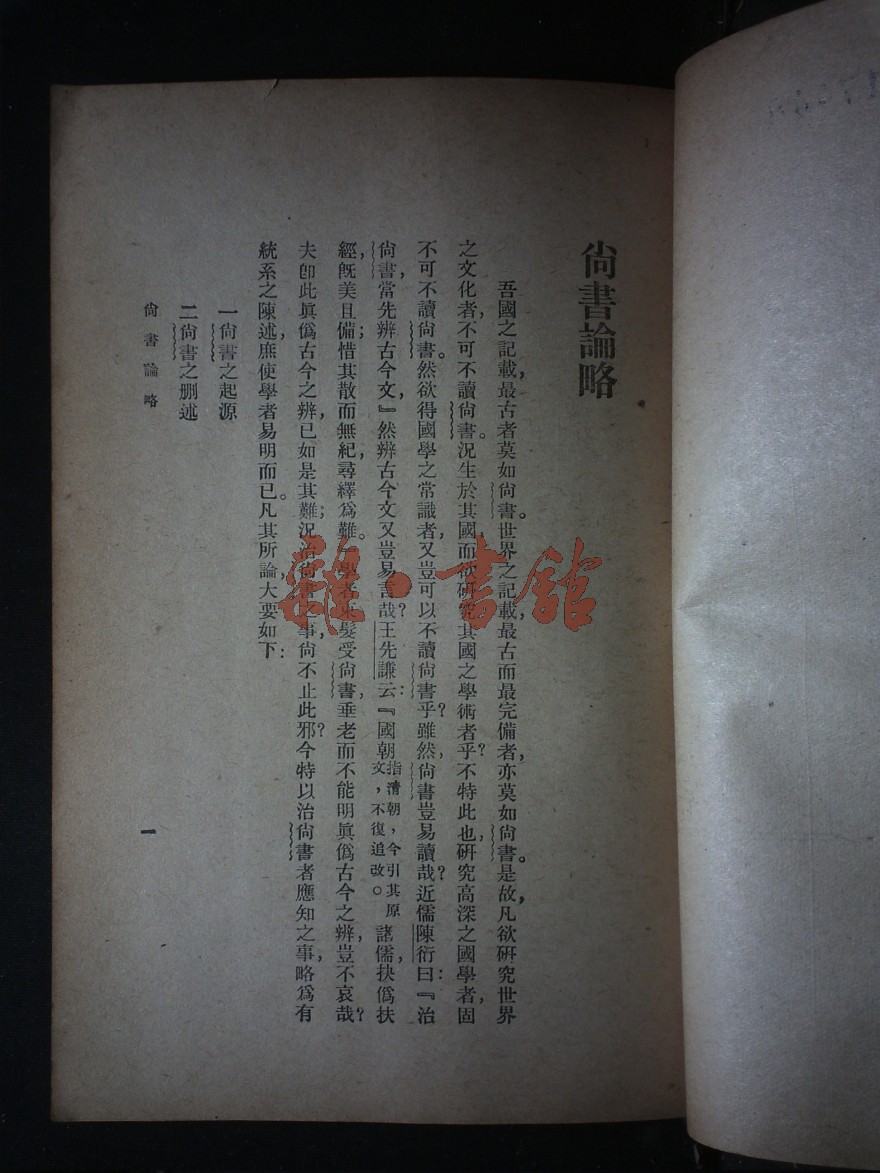 尚書論略
吾國之記載,最古者莫如尚書。世界之記載,最古而最完備者,亦莫如尚書。是故,凡欲研究世界
之文化者,不可不讀尚書。況生於其國,而欲研究其國之學術者乎?不特此也,研究高深之國學者,固
不可不讀尚書。然欲得國學之常識者,又豈可以不讀尚書乎?雖然,尚書豈易讀哉?近儒陳衍曰:『治
尚書,當先辨古今文,』然辨古今文又豈易言哉?王先謙云:『國朝指清朝,今引其原文,不復追改。諸儒,抉僞扶
經,旣美且備;惜其散而無紀,尋繹爲難。學者束髮受尚書,垂老而不能明眞僞古今之辨,豈不哀哉?
夫卽此眞僞古今之辨,已如是其難;況治尚書之事,尚不止此邪?今特以治尚書者應知之事,略爲有
統系之陳述,庶使學者易明而已。凡其所論,大要如下:
一尚書之起源
二尚書之删述
尚書論略
一
雜·書館